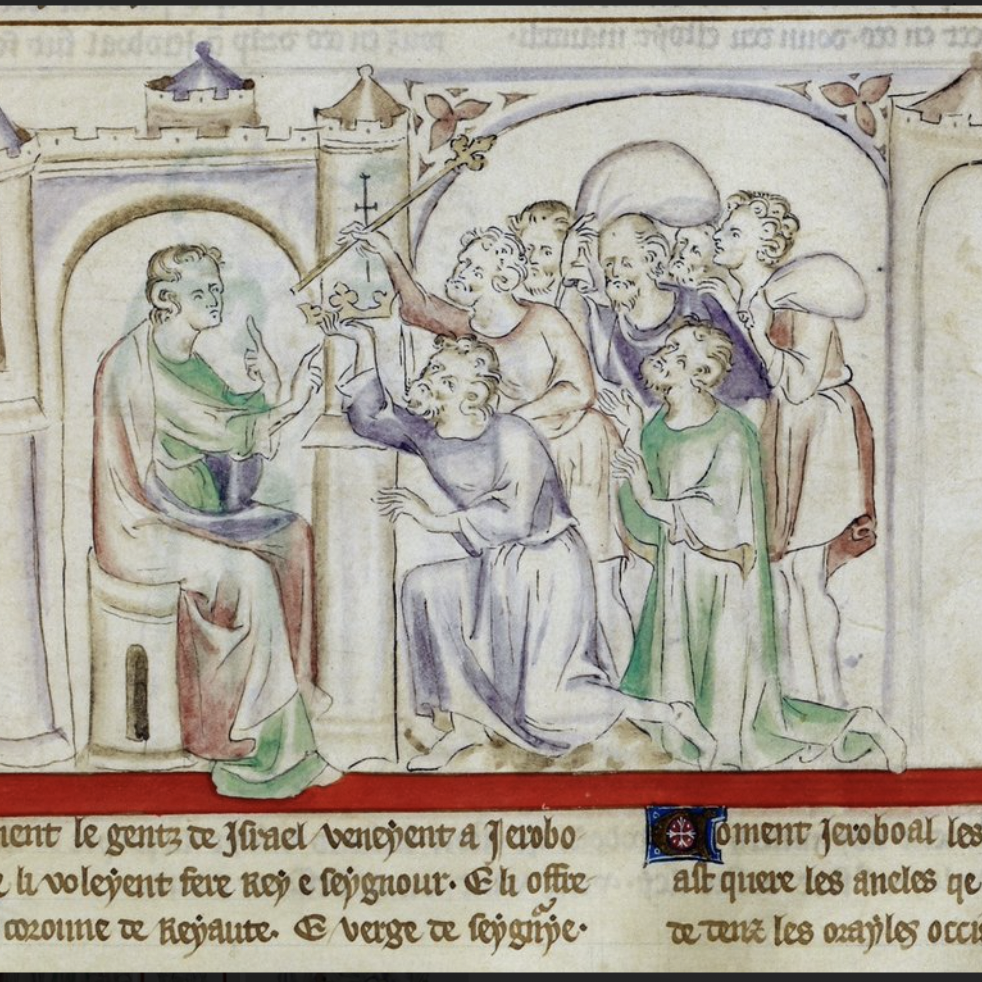 ment le gentz de Israel veneyent a Jerobo
e li voleyent fere Rey e seygnour. E li offre
coroune de Reyaute. E verge de seygnrye.
Coment Jeroboal les
ast quere les ancles qe
de denz les orayles occi